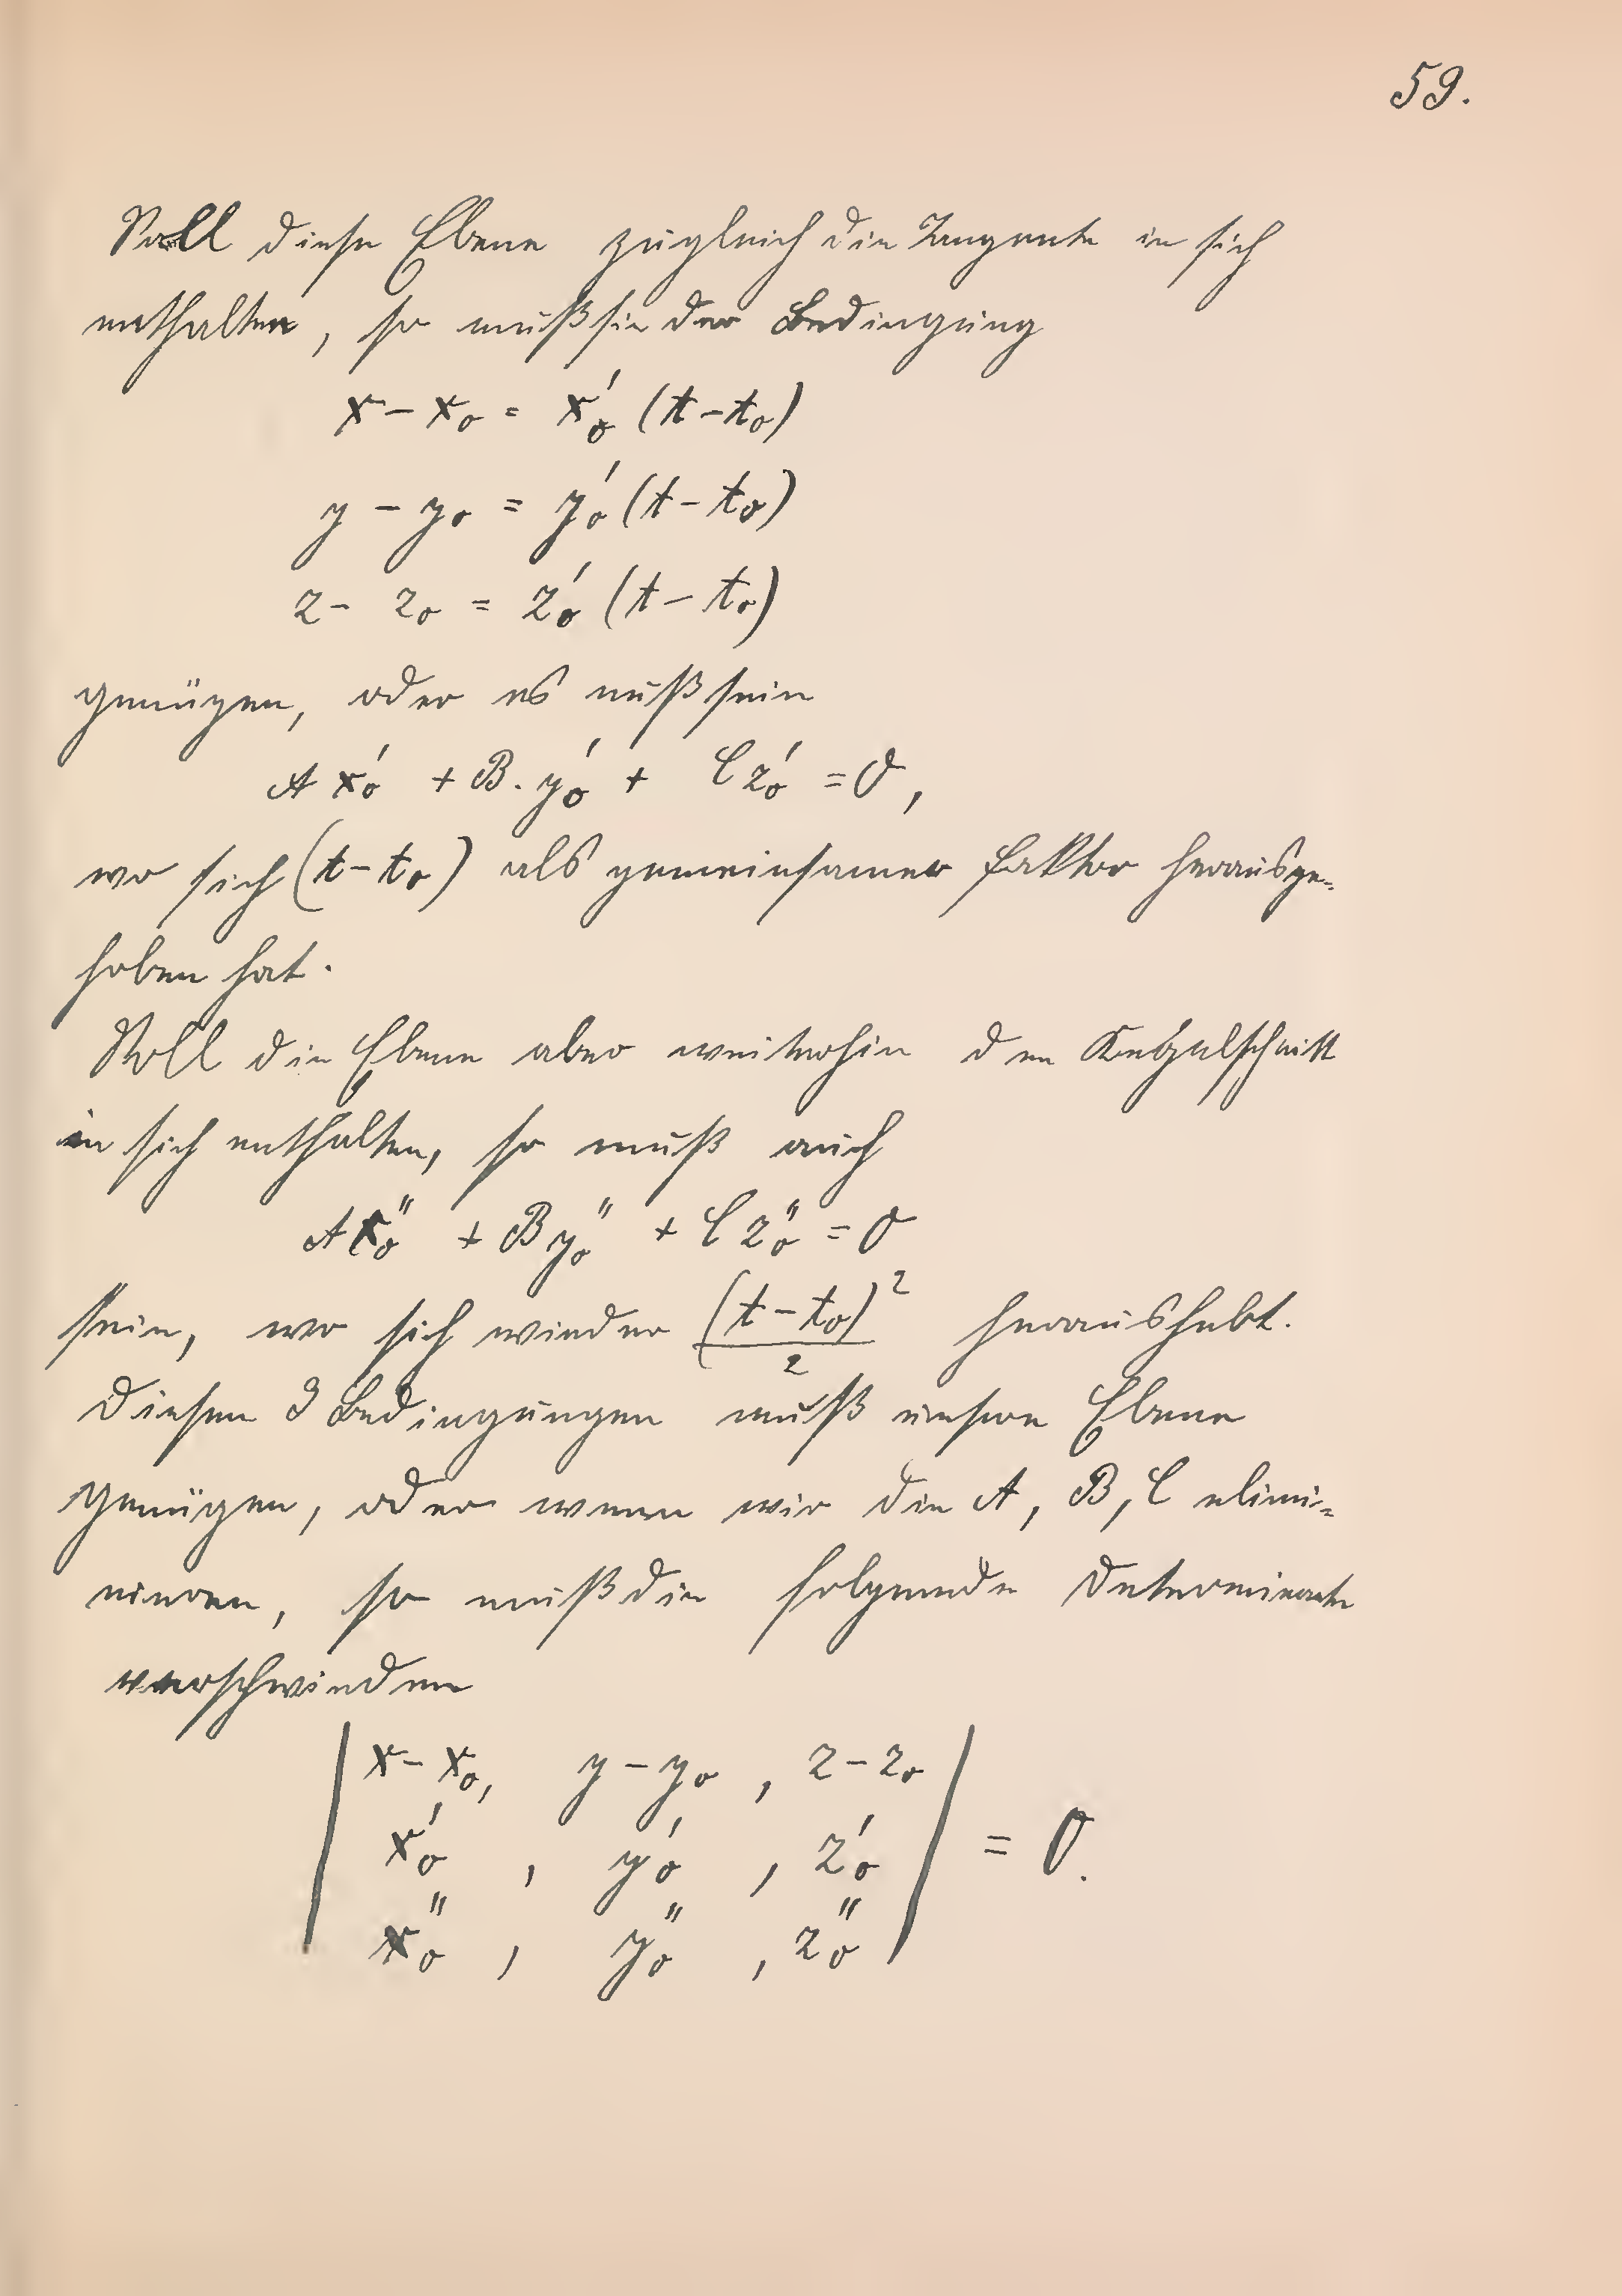 59.
Soll diese Ebene zugleich die Tangente in sich
enthalten, so muß sie der Bedingung
x - x₀ = x₀′ (t - t₀)
y - y₀ = y₀′ (t - t₀)
z - z₀ = z₀′ (t - t₀)
genügen, oder es muß sein
A x₀′ + B. y₀′ + C z₀′ = 0,
wo sich (t - t₀) als gemeinsamer Faktor herausge=
hoben hat.
Soll die Ebene aber weiterhin den Kegelschnitt
in sich enthalten, so muß auch
A x₀″ + B y₀″ + C z₀″ = 0
sein, wo sich wieder (t - t₀)²/2 heraushebt.
Diesen 3 Bedingungen muß unsere Ebene
genügen, oder wenn wir die A, B, C elimi=
nieren, so muß die folgende Determinante
verschwinden
| x - x₀, y - y₀, z - z₀ |
| x₀′, y₀′, z₀′ | = 0.
| x₀″, y₀″, z₀″ |